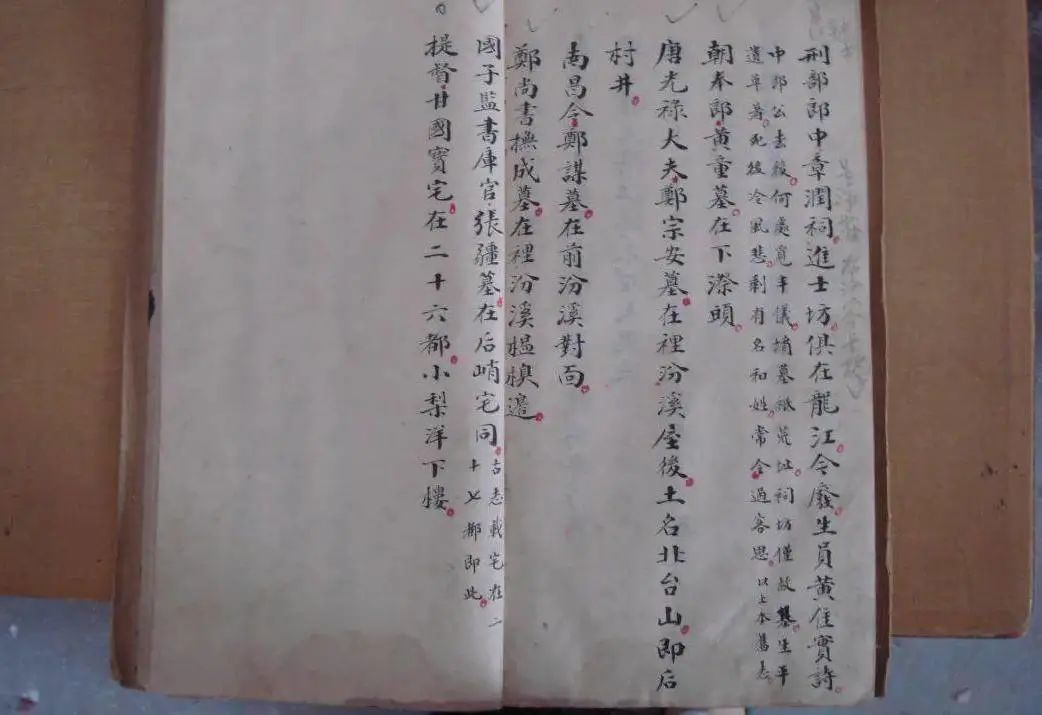 刑部郎中章潤祠。進士坊。俱在龍江。今廢。生員黃任實詩。
中郎公去後。何處覓丰儀。墳墓祇荒址。祠坊僅故基。生平
遺草著。死後冷風悲。剩有名和姓。常令過客思。以上本舊志。
朝奉郎。黄童墓。在下漈頭。
唐光祿大夫。鄭宗安墓。在裡汾溪屋後。土名北台山。即后
村井。
南昌令。鄭謀墓。在前汾溪對面。
鄭尚書撫成墓。在裡汾溪榅樉邉。
國子監書庫官。張疆墓。在后峭宅同。古志載宅在二
十七都即此。
提督。甘國寶宅。在二十六都。小梨洋下樓。